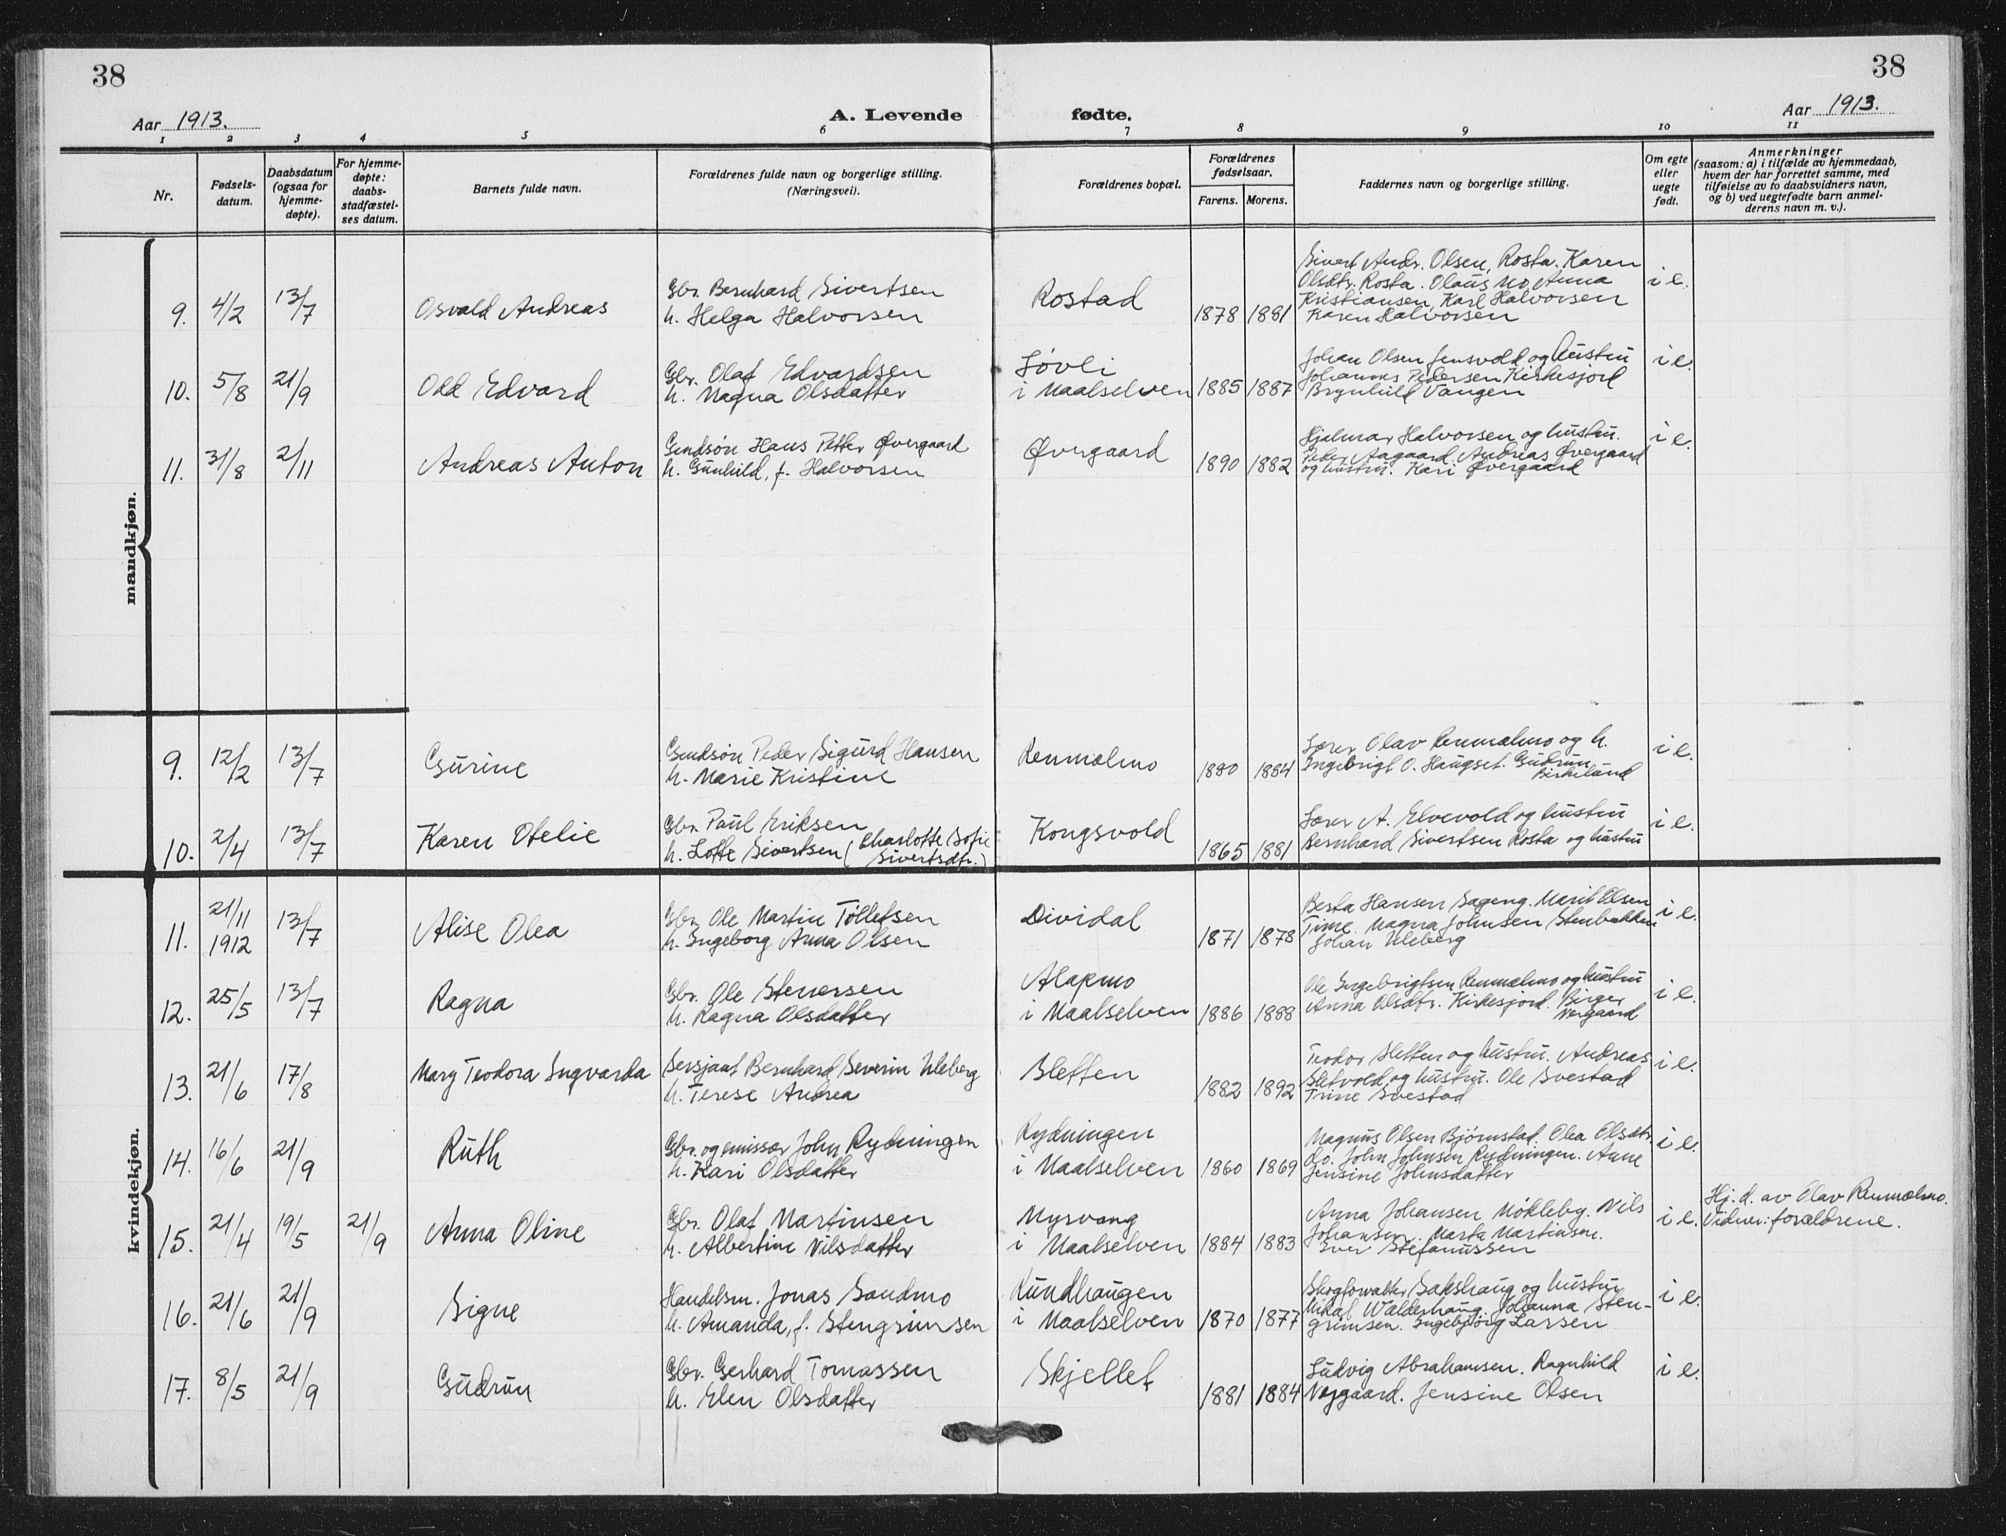 38
38
Aar 1913.
A. Levende fødte.
Aar 1913.
1 2 3 4 5 6 7 8 9 10 11
Nr.
Fødsels-
datum.
Daabsdatum
(ogsaa for
hjemme-
døpte).
For hjemme-
døpte:
daabs-
stadfæstel-
ses datum.
Barnets fulde navn.
Forældrenes fulde navn og borgerlige stilling.
(Næringsvei).
Forældrenes bopæl.
Forældrenes
fødselsaar.
Farens. Morens.
Faddernes navn og borgerlige stilling.
Om egte
eller
uegte
født.
Anmerkninger
(saasom: a) i tilfælde av hjemmedaab,
hvem der har forrettet samme, med
tilføielse av to daabsvidners navn,
og b) ved uegtefødte barn anmel-
derens navn m. v.).
mandkjøn.
9. 4/2 13/7 Osvald Andreas
Gbr. Bernhard Sivertsen
h. Helga Halvorsen
Rostad
1878 1881
Sivert Andr. Olsen, Rosta. Karen
Olsdtr. Rosta. Olaus og Anna
Kristiansen, Karl Halvorsen
Karen Halvorsen
i e.
10. 5/8 21/9 Odd Edvard
Gbr. Olaf Edvardsen
h. Magna Olsdatter
Løvli
i Maalselven
1885 1887
Johan Olsen Jensvold og hustru
Johannes Pedersen Kirkesjord
Brynhild Vangen
i e.
11. 31/8 2/11 Andreas Anton
Gmdsøn Hans Petter Øvergaard
h. Gunhild, f. Halvorsen
Øvergaard
1890 1882
Hjalmar Halvorsen og hustru.
Peder Aagaard. Andreas Øvergaard
og hustru. Kari Øvergaard
i e.
9. 12/2 13/7 Gurine
Gmdsøn Peder Sigurd Hansen
h. Marie Kristine
Renmælmo
1880 1884
Lærer Olav Renmælmo og h.
Ingebrigt O. Haugset. Gudrun
Birkelund
i e.
10. 2/4 13/7 Karen Otelie
Gbr. Paul Eriksen
h. Lotte Sivertsen (Charlotte Sofie
Sivertsdtr.)
Kongsvold
1865 1881
Lærer A. Elvevold og hustru
Bernhard Sivertsen Rosta og hustru
i e.
kvindekjøn.
11. 21/11 1912 13/7 Alise Olea
Gbr. Ole Martin Tollefsen
h. Ingeborg Anna Olsen
Dividal
1871 1878
Berta Hansen Sageng. Marit Olsen
Time. Magna Johnsen Stenbakken
Johan Uleberg
i e.
12. 25/5 13/7 Ragna
Gbr. Ole Stenersen
h. Ragna Olsdatter
Alapmo
i Maalselven
1886 1888
Ole Ingebrigtsen Renmælmo og hustru
Anna Olsdtr. Kirkesjord. Birger
Nergaard
i e.
13. 21/6 17/8 Mary Teodora Ingvarda
Sersjant Bernhard Severin Uleberg
h. Terese Andrea
Sletten
1882 1892
Teodor Sletten og hustru. Andreas
Sletvold og hustru. Ole Svestad
Trine Svestad
i e.
14. 16/6 21/9 Ruth
Gbr. og emissær John Rydningen
h. Kari Olsdatter
Rydningen
i Maalselven
1860 1869
Magnus Olsen Bjørnstad. Olea Olsdtr.
do. John Johnsen Rydningen. Anne
Jensine Johnsdatter
i e.
15. 21/4 19/5 21/9 Anna Oline
Gbr. Olaf Martinsen
h. Albertine Nilsdatter
Myrvang
i Maalselven
1884 1883
Anna Johansen Møkleby. Nils
Johansen. Marta Martinsen.
Iver Stefanussen
i e.
Hj. d. av Olav Renmælmo.
Vidner: forældrene.
16. 21/6 21/9 Signe
Handelsm. Jonas Sandmo
h. Amanda, f. Stengrimsen
Rundhaugen
i Maalselven
1870 1877
Skogforvalter Sakshaug og hustru
Mikal Walderhaug. Johanna Sten-
grimsen. Ingebjørg Larsen
i e.
17. 8/5 21/9 Gudrun
Gbr. Gerhard Tomassen
h. Elen Olsdatter
Skjellet
1881 1884
Ludvig Abrahamsen. Ragnhild
Nygaard. Jensine Olsen
i e.